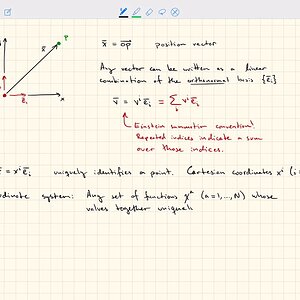 P
x⃗
x⃗ = OP⃗ position vector
Any vector can be written as a linear
combination of the orthonormal basis {e⃗ᵢ}
e⃗₁ x
v⃗ = vⁱe⃗ᵢ = Σᵢ vⁱe⃗ᵢ
Einstein summation convention!
Repeated indices indicate a sum
over those indices.
= xⁱe⃗ᵢ uniquely identifies a point. Cartesian coordinates xⁱ (i
rdinate system: Any set of functions yᵃ (a=1,...,N) whose
values together uniquel